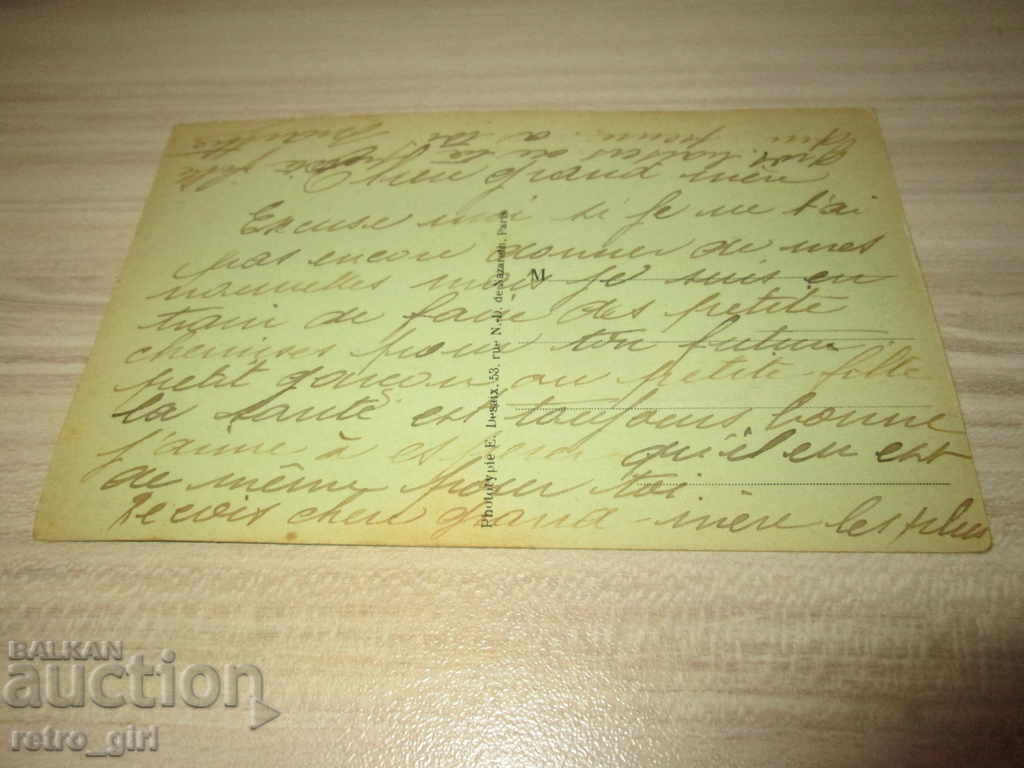 Chere grand mère
Excuse moi si je ne t'ai
pas encore donner de mes
nouvelles mais je suis en
train de faire des petite
chemises pour ton futur
petit garçon ou petite fille
la santé est toujours bonne
j'aime à espérer qu'il en est
de même pour toi
Recois chere grand-mère les plus
M
Phototypie E. Desaix, 53, rue N.-D. de Nazareth, Paris
BALKAN
auction
retro_girl